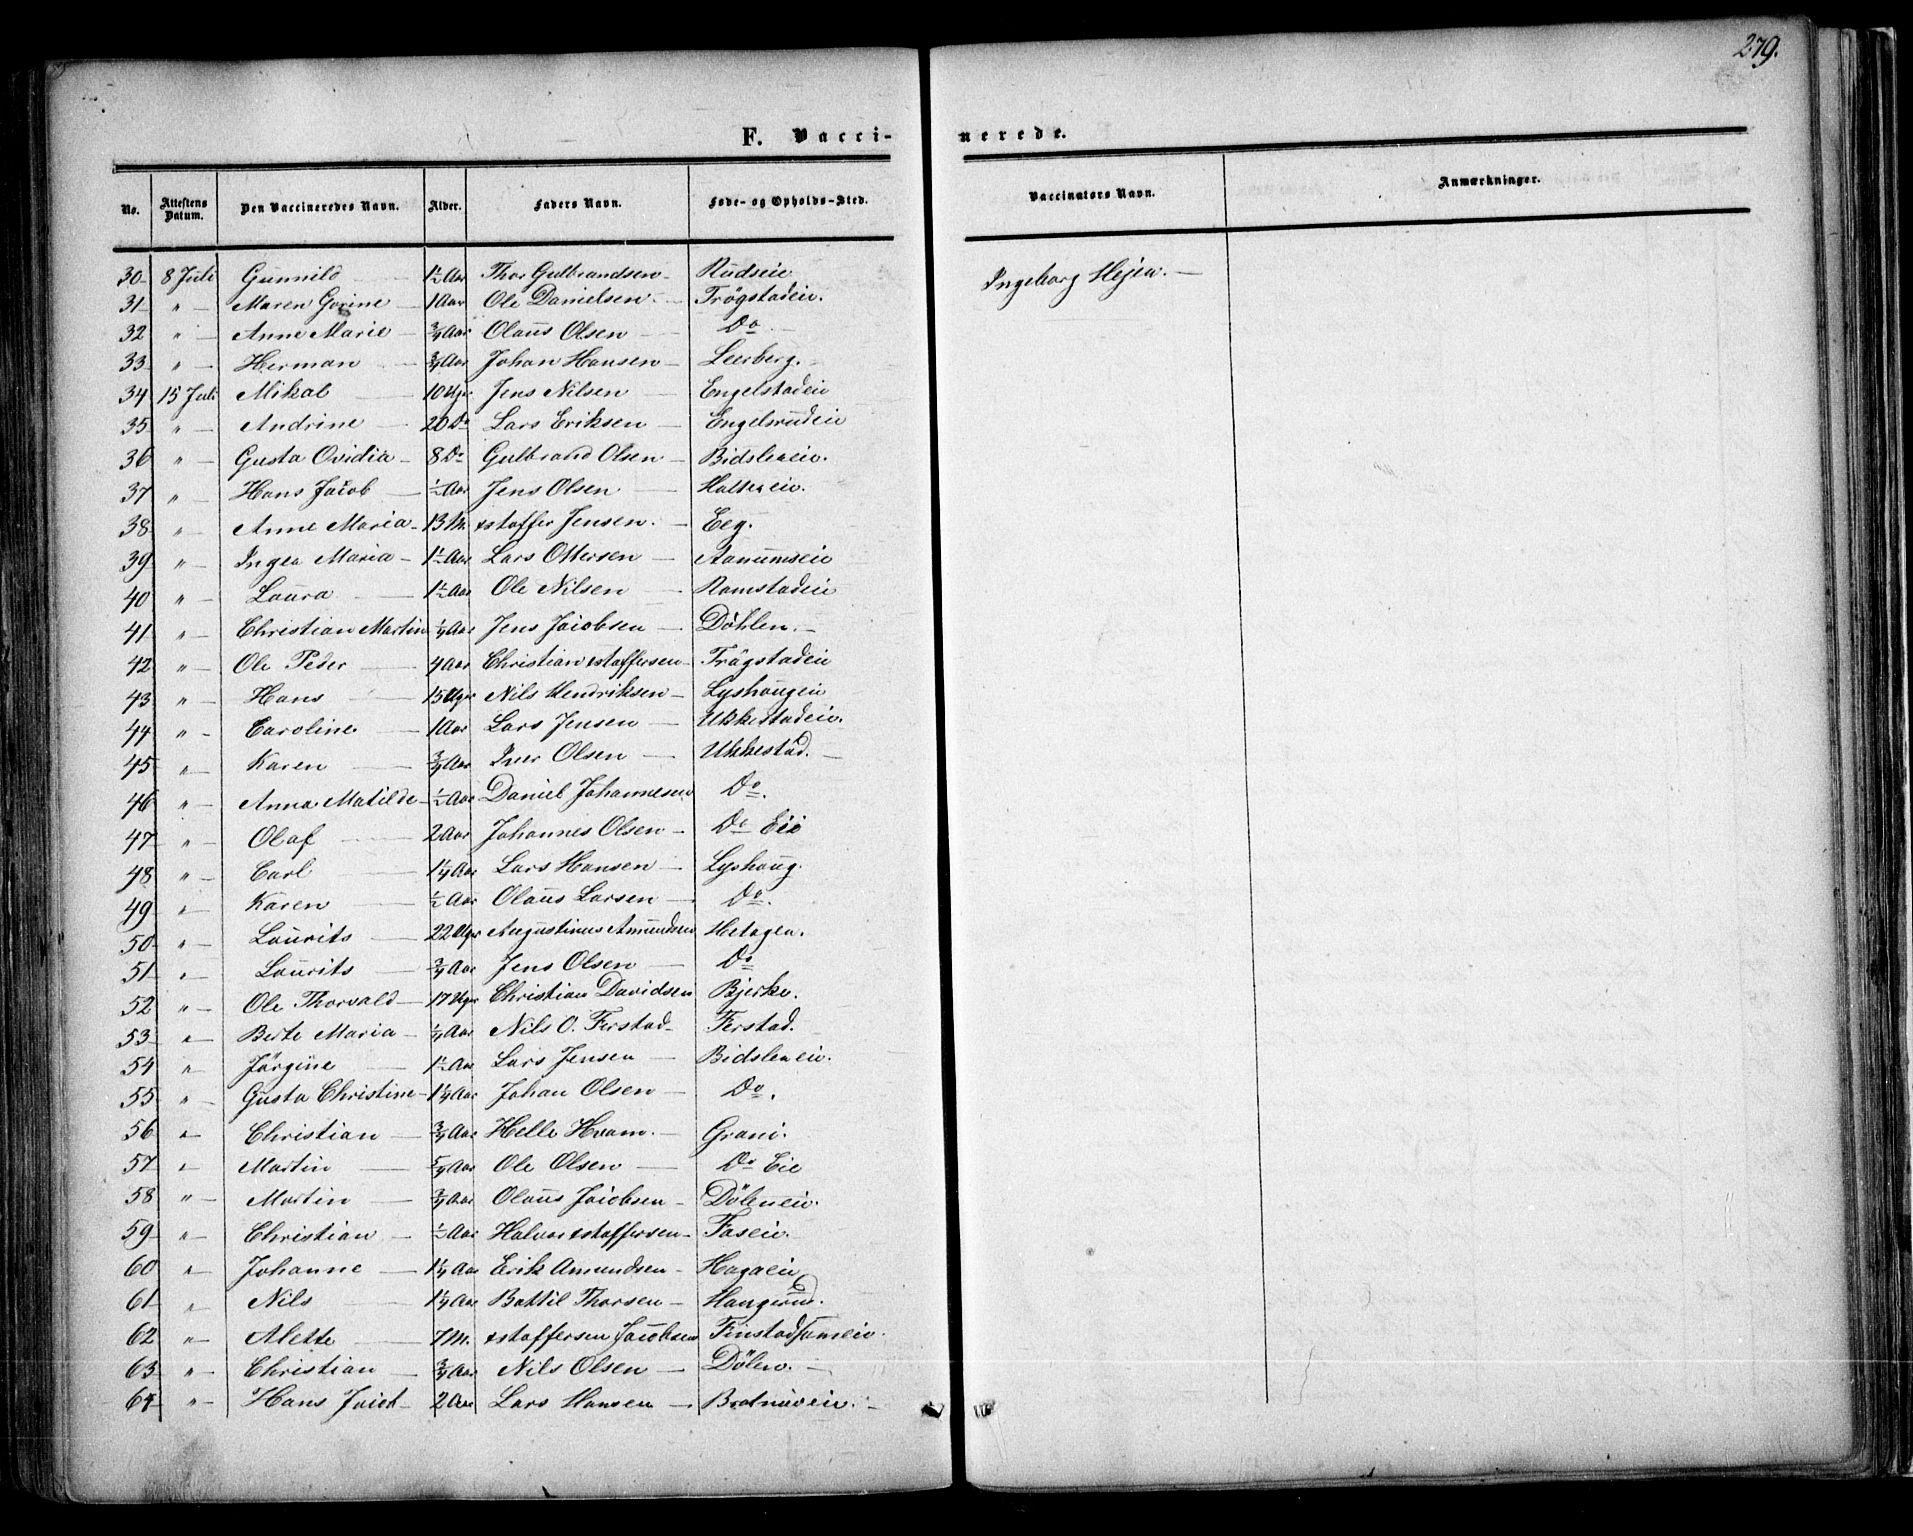 279.
F. Vaccinerede.
No. Attestens Datum. Den Vaccineredes Navn. Alder. Faders Navn. Føde- og Opholds-Sted. Vaccinators Navn. Anmærkninger.
30 8 Juli Gunnild 1½ Aar Thor Gulbrandsen Rudseie Ingeborg Hejea.
31 " Maren Gorine 1 Aar Ole Danielsen Trøgstadeie.
32 " Anne Marie ¾ Aar Olaus Olsen Do
33 " Herman ¾ Aar Johan Hansen Leerberg.
34 15 Juli Mikal 10 Uger Jens Nilsen Engelstadeie
35 " Andrine 20 Do Lars Eriksen Engelsrudeie
36 " Gusta Ovidia 8 Do Gulbrand Olsen Bidsleneie.
37 " Hans Jacob ½ Aar Jens Olsen
38 " Anne Maria 13 M. xstaffer Jensen. Eeg.
39 " Inger Maria 1½ Aar Lars Ottersen Aanumseie
40 " Laura 1½ Aar Ole Nilsen Ramstadeie
41 " Christian Martin ¼ Aar Jens Jacobsen Døhlen.
42 " Ole Peder 4 Aar Christian xstaffersen Trøgstadeie
43 " Hans 15 Uger Nils Hendriksen Lyshaugeie
44 " Caroline 1 Aar Lars Jensen Ukkestadeie.
45 " Karen ¾ Aar Iver Olsen Ukkestad.
46 " Anna Matilde ½ Aar Daniel Johannesen Do.
47 " Olaf 2 Aar Johannes Olsen Do Eie
48 " Carl 1¼ Aar Lars Hansen Lyshaug.
49 " Karen ½ Aar Olaus Larsen Do.
50 " Laurits 22 Uger Augustinus Amundsen Hetagen.
51 " Laurits ¾ Aar Jens Olsen Do
52 " Ole Thorvald 17 Uger Christian Davidsen Bjerke.
53 " Berte Maria ¼ Aar Nils O. Ferstad Ferstad.
54 " Jørgine 1½ Aar Lars Jensen Bidsleneie.
55 " Gusta Christine 1¼ Aar Johan Olsen Do.
56 " Christian ¾ Aar Helle Hvam. Grani.
57 " Martin 5/4 Aar Ole Olsen Do Eie
58 " Martin ¾ Aar Olaus Jacobsen Døleneie.
59 " Christian ½ Aar Halvor xstaffersen Faseie.
60 " Johanne 1¼ Aar Erik Amundsen Hagaeie
61 " Nils 1¼ Aar Battil Thorsen Haugerud.
62 " Alette 7 M. xstaffersen Jacobsen
63 " Christian ¾ Aar Nils Olsen Dølen.
64 " Hans Jacob 2 Aar Lars Hansen Bratnuseie.